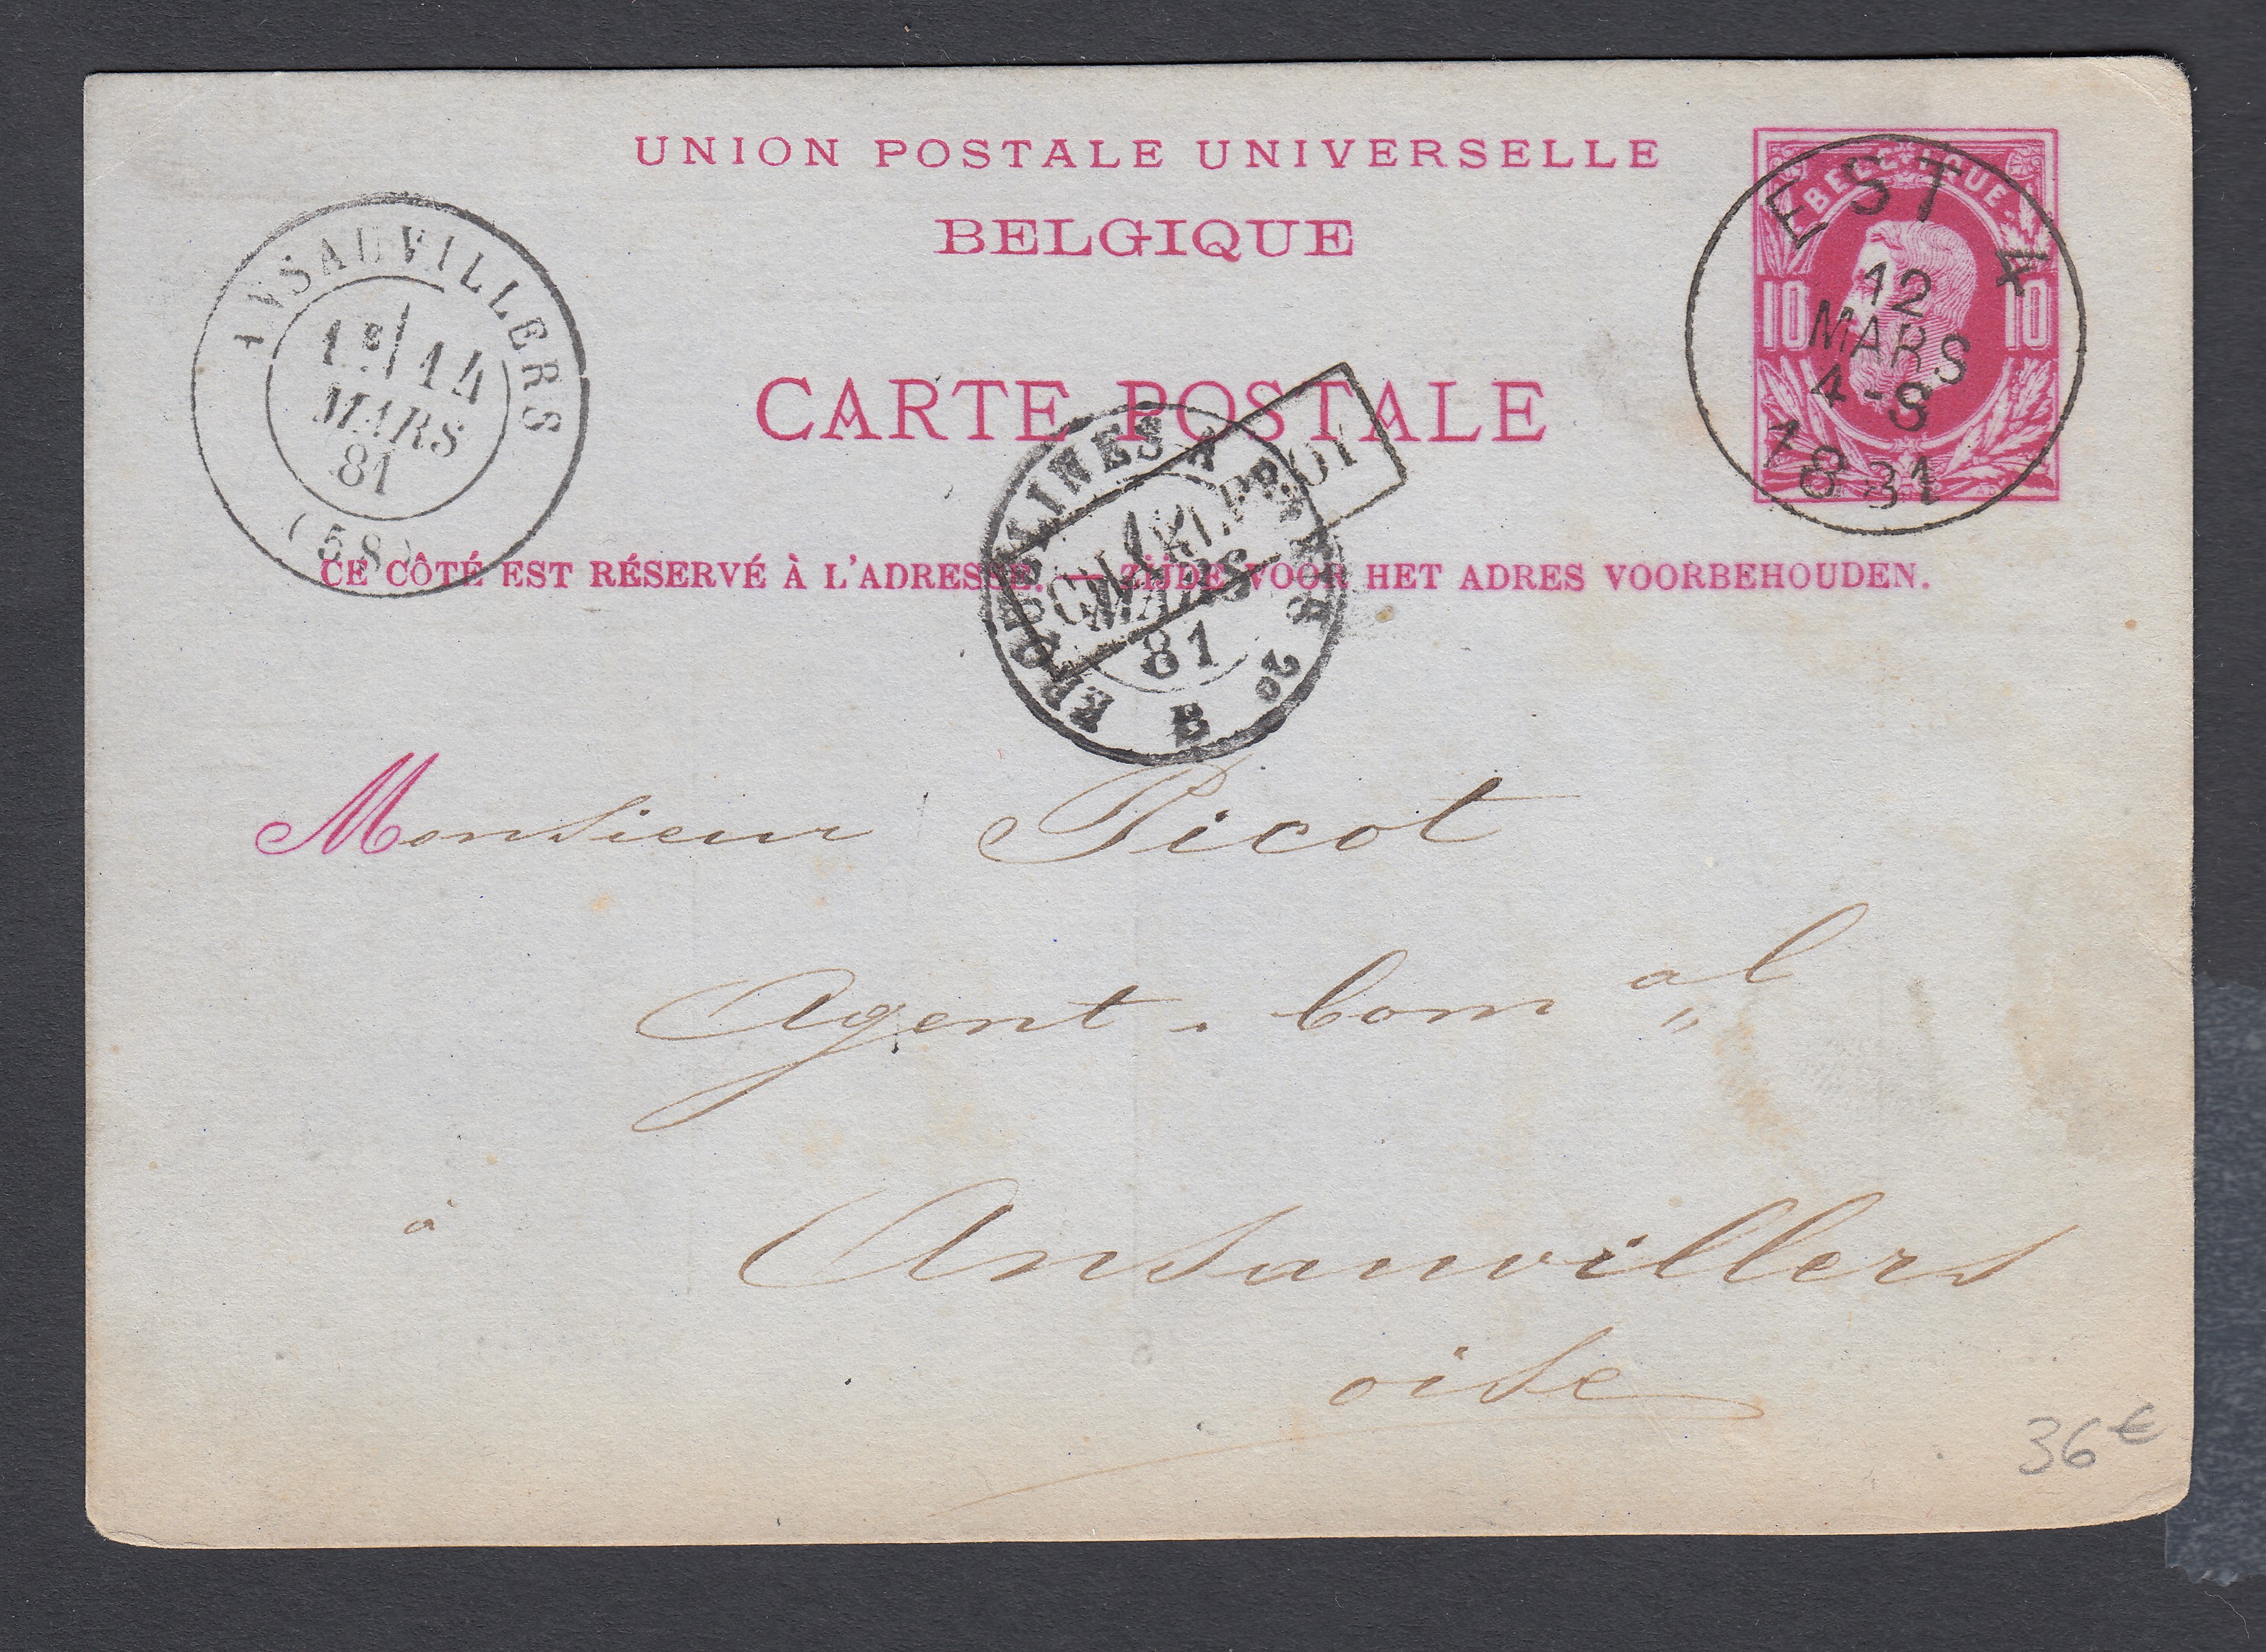 UNION POSTALE UNIVERSELLE
BELGIQUE
CARTE POSTALE
CE CÔTÉ EST RÉSERVÉ À L'ADRESSE. — ZIJDE VOOR HET ADRES VOORBEHOUDEN.
BELGIQUE
10 10
EST 4
12
MARS
4-8
1881
ANSAUVILLERS
1E/14
MARS
81
(58)
ERQUELINES A PARIS
MARS
81
2º
E
CHARLEROY
Monsieur Picot
Agent. Com al
à Ansauvillers
oise
36€